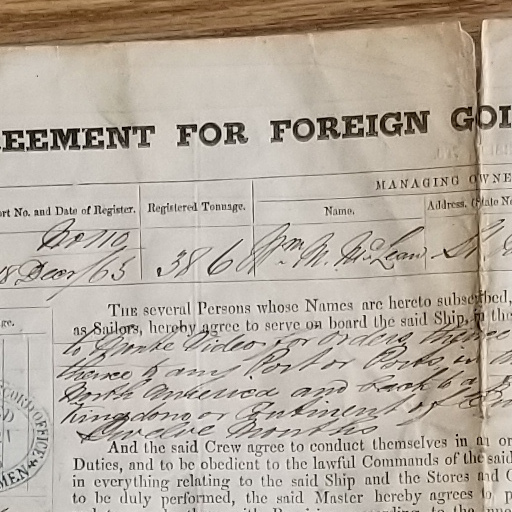 REEMENT FOR FOREIGN GOI
MANAGING OWNE
ort No. and Date of Register. Registered Tonnage. Name. Address. (State No
No 110
18 Decr/63 386 Wm N. McLean St.
THE several Persons whose Names are hereto subscribed,
as Sailors, hereby agree to serve on board the said Ship, in the
to Monte Video for Orders thence
thence to any Port or Ports in
North America and back to a
Kingdom or Continent of
Twelve Months
And the said Crew agree to conduct themselves in an or
Duties, and to be obedient to the lawful Commands of the said
in everything relating to the said Ship and the Stores and C
to be duly performed, the said Master hereby agrees to p